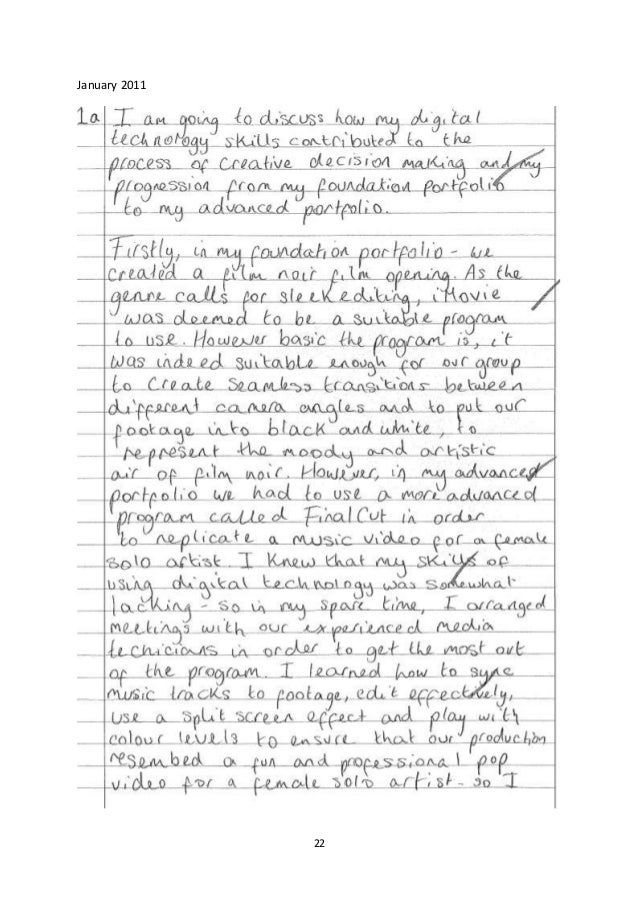 January 2011
1a I am going to discuss how my digital
technology skills contributed to the
process of creative decision making and my
progression from my foundation portfolio
to my advanced portfolio.
Firstly, in my foundation portfolio - we
created a film noir film opening. As the
genre calls for sleek editing, iMovie
was deemed to be a suitable program
to use. However basic the program is, it
was indeed suitable enough for our group
to create seamless transitions between
different camera angles and to put our
footage into black and white, to
represent the moody and artistic
air of film noir. However, in my advanced
portfolio we had to use a more advanced
program called FinalCut in order
to replicate a music video for a female
solo artist. I knew that my skills of
using digital technology was somewhat
lacking - so in my spare time, I arranged
meetings with our experienced media
techicians in order to get the most out
of the program. I learned how to sync
music tracks to footage, edit effectively,
use a split screen effect and play with
colour levels to ensure that our production
resembed a fun and professional pop
video for a female solo artist - so I
22